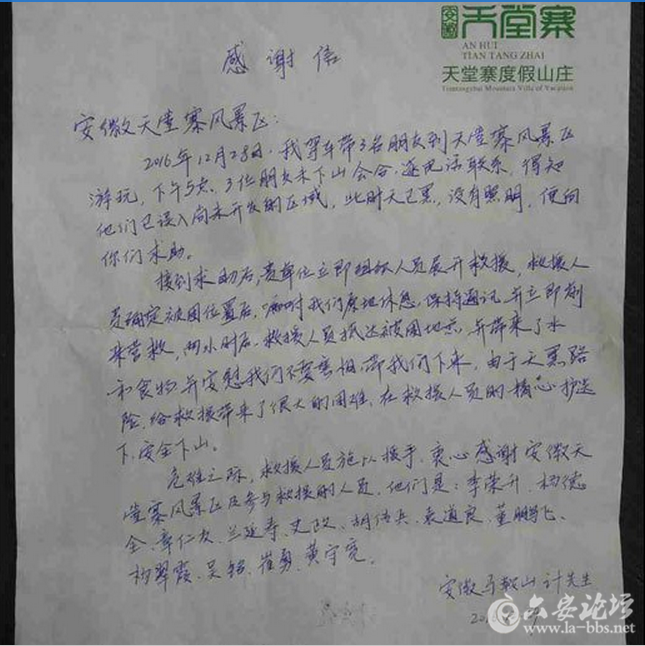 安徽
天堂寨
AN HUI
TIAN TANG ZHAI
天堂寨度假山庄
Tiantangzhai Mountain Villa of Vacation
感谢信
安徽天堂寨风景区:
2016年12月28日,我驾车带3名朋友到天堂寨风景区
游玩,下午5点,3位朋友未下山会合,遂电话联系,得知
他们已误入尚未开发的区域,此时天已黑,没有照明,便向
你们求助。
接到求助后,贵单位立即组织人员展开救援,救援人
员确定被困位置后,嘱咐我们原地休息,保持通讯,并立即赶
来营救,两小时后,救援人员抵达被困地点,并带来了水
和食物,并安慰我们不要害怕,带我们下来,由于天黑路
险,给救援带来了很大的困难,在救援人员的精心护送
下,安全下山。
危难之际,救援人员施以援手,衷心感谢安徽天
堂寨风景区及参与救援的人员,他们是:李荣升、杨德
全、章仁友、兰延寿、史政、胡传兵、袁道良、董鹏飞、
杨翠霞、吴铭、崔勇、黄守亮。
安徽马鞍山 计先生
六安论坛
www.la-bbs.net